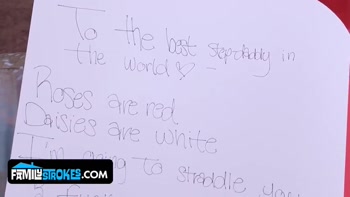 To the best stepdaddy in
the world ♡ -
Roses are red
Daisies are white
I'm going to straddle you
FAMILYSTROKES.COM